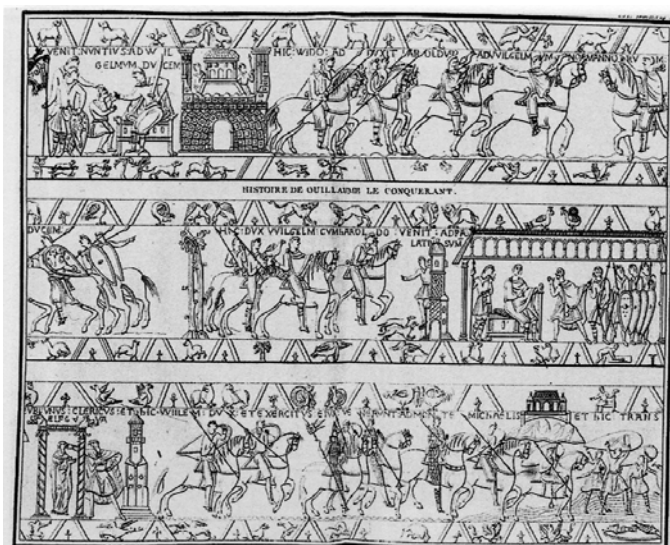 VENIT: NUNTIUS: AD WIL
GELMUM DUCEM
HIC: WIDO: AD DUXIT HAROLDUM AD VVILGELMUM: NORMANNORUM
HISTOIRE DE GUILLAUME LE CONQUERANT.
DUCEM
HIC: DUX VVILGELM: CUM HAROLDO: VENIT: AD PA
LATIUM SUUM
UBI: UNUS: CLERICUS: ET: HIC: WILLEM: DUX: ET EXERCITUS EIUS: VENERUNT: AD MONTE MICHAELIS ET HIC TRANS